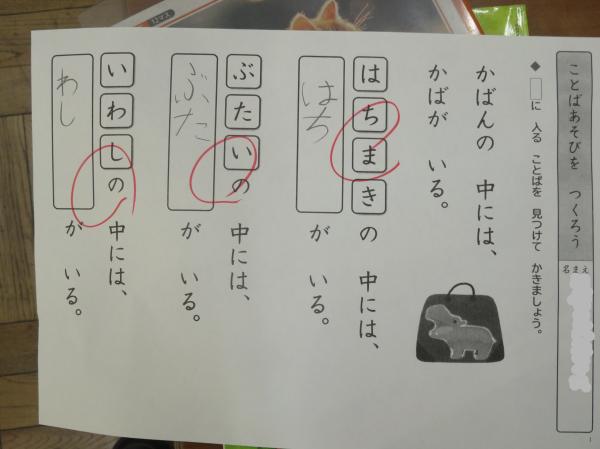 ことばあそびを つくろう
名まえ
◆□に 入る ことばを 見つけて かきましょう。
かばんの 中には、
かばが いる。
はちまきの 中には、
はちが いる。
ぶたいの 中には、
ぶたが いる。
いわしの 中には、
わしが いる。
1